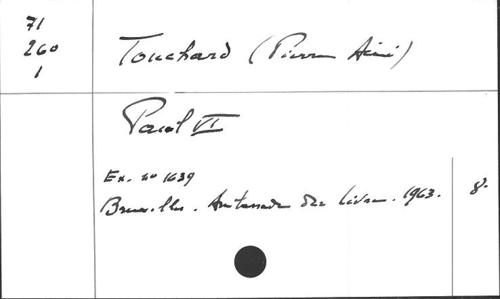 71
260
1
Touchard (Pierre Aimé)
Paul VI
Ex. no 1639
Bruxelles. Ambassade du Livre. 1963.
8.